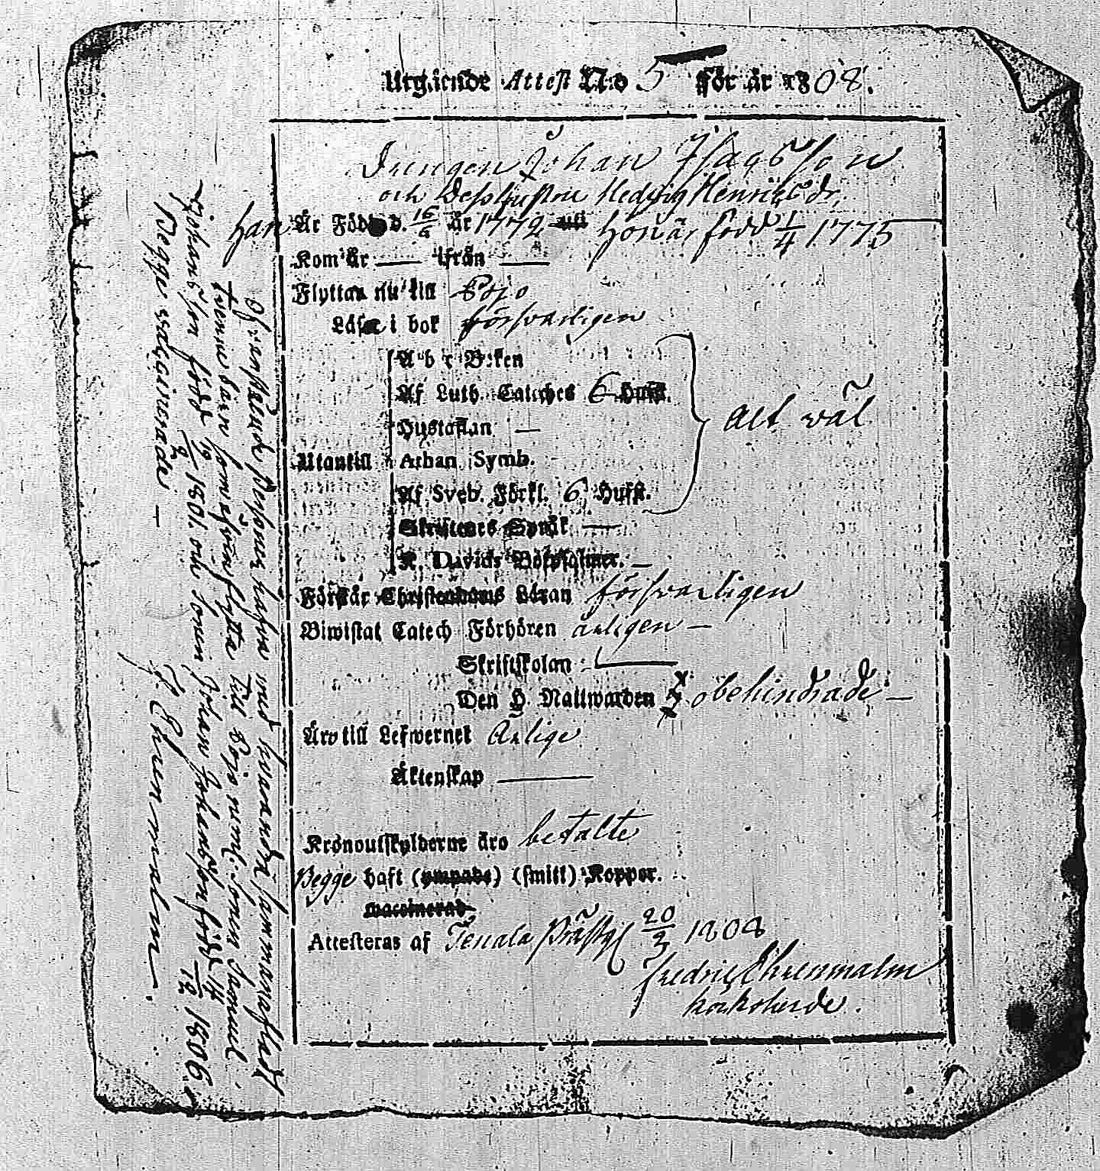 Utgående Attest No 5 för år 1808.
Drengen Johan Isacsson
och Dess Hustru Hedvig Henricsdr,
han Är Född d. 16/6 år 1772 till hon är född 1/4 1775
Kom år — ifrån —
Flyttar nu till Pojo
Läser i bok försvarligen
A b c Boken
Af Luth. Cateches 6 Hufst.
Hustaflan —
Utantill Athan Symb.
Af Sveb. Förkl. 6 Hufst.
Alt väl
Skriftenes Språk —
K. Davids Botpsalmer. —
Förstår Christendoms Läran försvarligen
Biwistat Catech Förhören ärligen —
Skriftskolan —
Den H. Nattwarden obehindrade —
Äro till Lefwernet Ärlige
Äktenskap —
Kronoutskylderne äro betalte
Begge haft (ympade) (smitt) Koppor.
waccinerad
Attesteras af Tenala Prästg. 20/3 1808
Fredric Ehrenmalm
Kyrkoherde.
Personer hafva med hvarandra sammanaflat
tvenne barn som åfvenflytta till Pojo neml. Sonen Samuel
Johansson född 19/9 1801. och sonen Johan Johansson född 14/12 1806.
Begge vaccinerade —
F. Ehrenmalm.